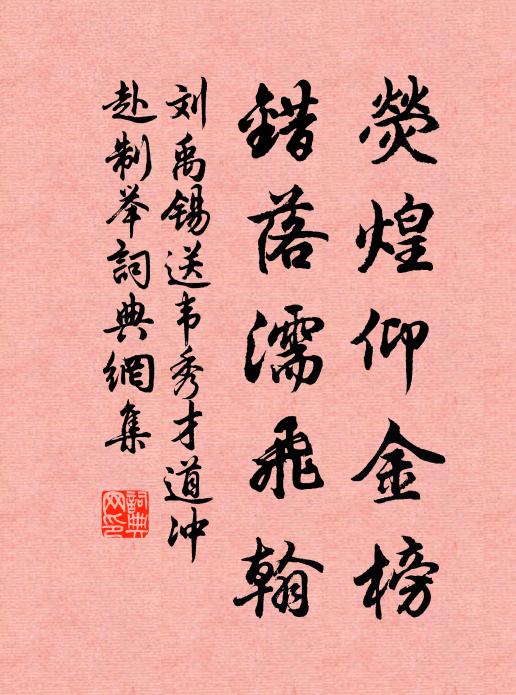 荧煌仰金榜
錯落濡飛翰
刘禹锡送韦秀才道冲
赴制举詞典網集
詞典网印